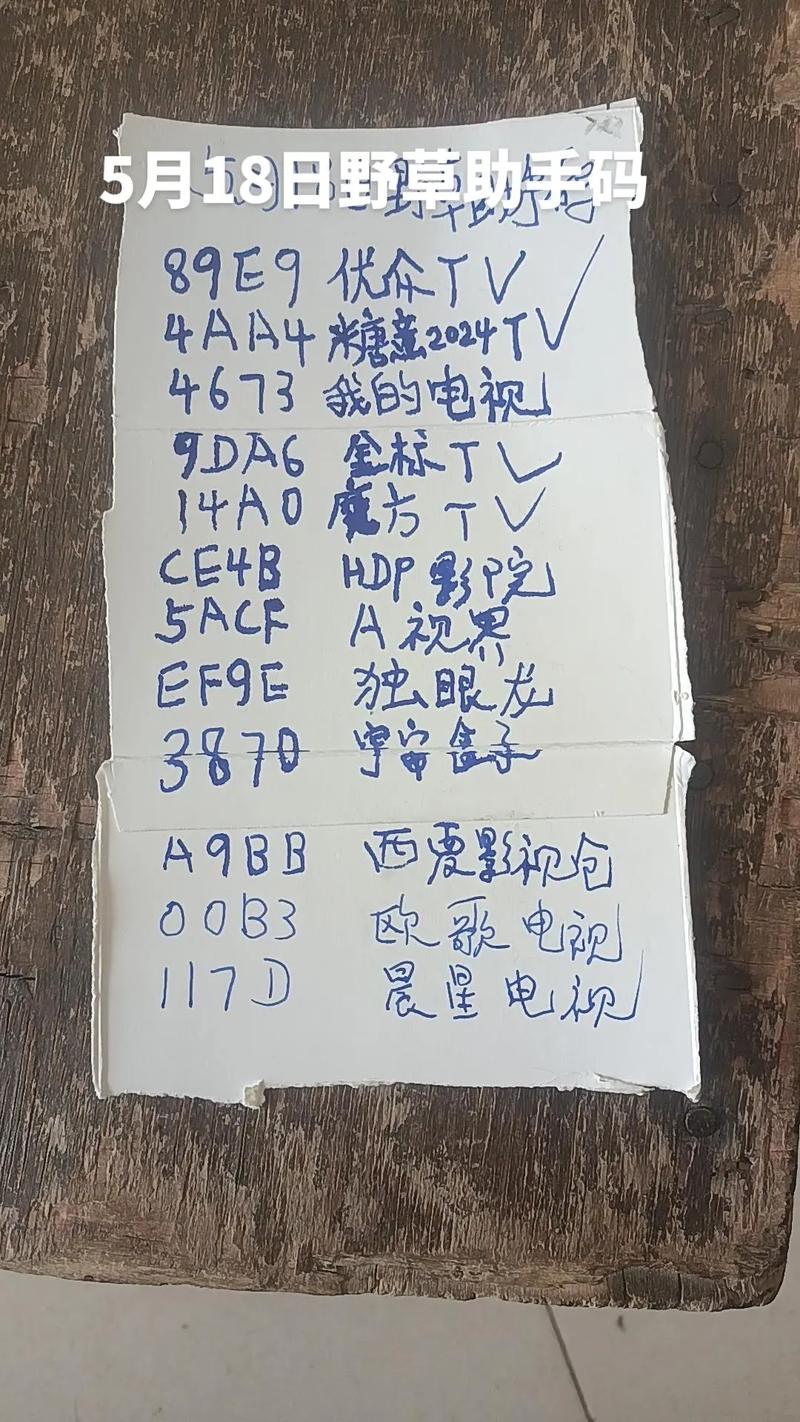 5月18日野草助手码
5月18日野草助手码
89E9 优众TV
4AA4 糖蕉2024TV
4673 我的电视
9DA6 金标TV
14A0 魔方TV
CE4B HDP影院
5ACF A视界
EF9E 独眼龙
3870 宇宙盒子
A9BB 西夏影视仓
00B3 欧歌电视
117D 晨星电视